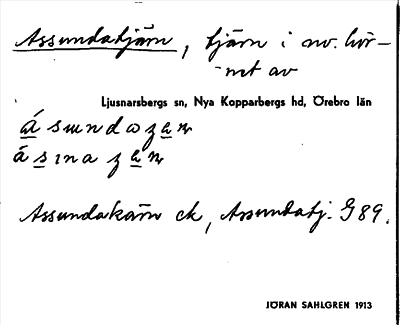 Assundatjärn, tjärn i nv. hör-
net av
Ljusnarsbergs sn, Nya Kopparbergs hd, Örebro län
ásundazan
ásinazan
Assundakärn ck, Assundatj. G 89.
JÖRAN SAHLGREN 1913